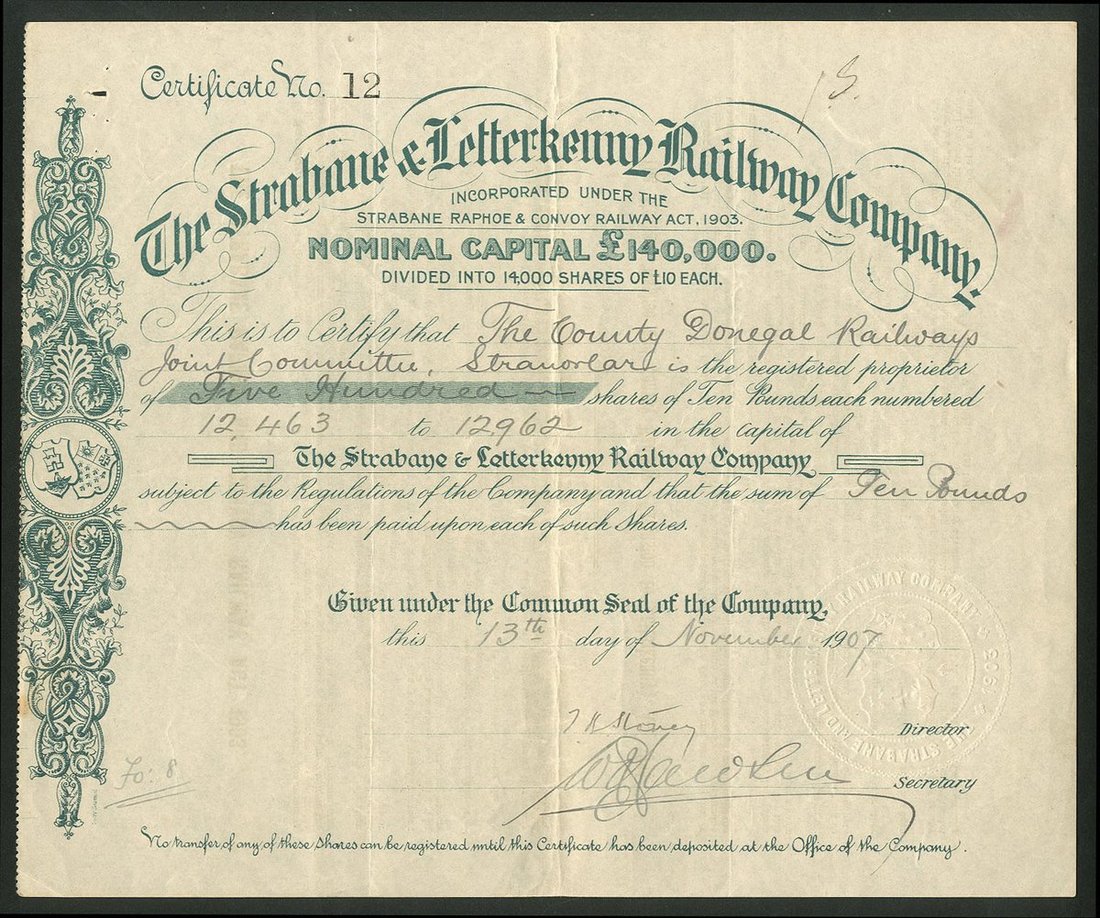 Certificate No. 12
The Strabane & Letterkenny Railway Company.
INCORPORATED UNDER THE
STRABANE RAPHOE & CONVOY RAILWAY ACT, 1903.
NOMINAL CAPITAL £140,000.
DIVIDED INTO 14,000 SHARES OF £10 EACH.
This is to Certify that The County Donegal Railways
Joint Committee, Stranorlar is the registered proprietor
of Five Hundred shares of Ten Pounds each numbered
12,463 to 12962 in the capital of
The Strabane & Letterkenny Railway Company
subject to the Regulations of the Company and that the sum of Ten Pounds
has been paid upon each of such Shares.
Given under the Common Seal of the Company,
this 13th day of November 1907
Director
Secretary
Fo: 8
No transfer of any of these Shares can be registered until this Certificate has been deposited at the Office of the Company.